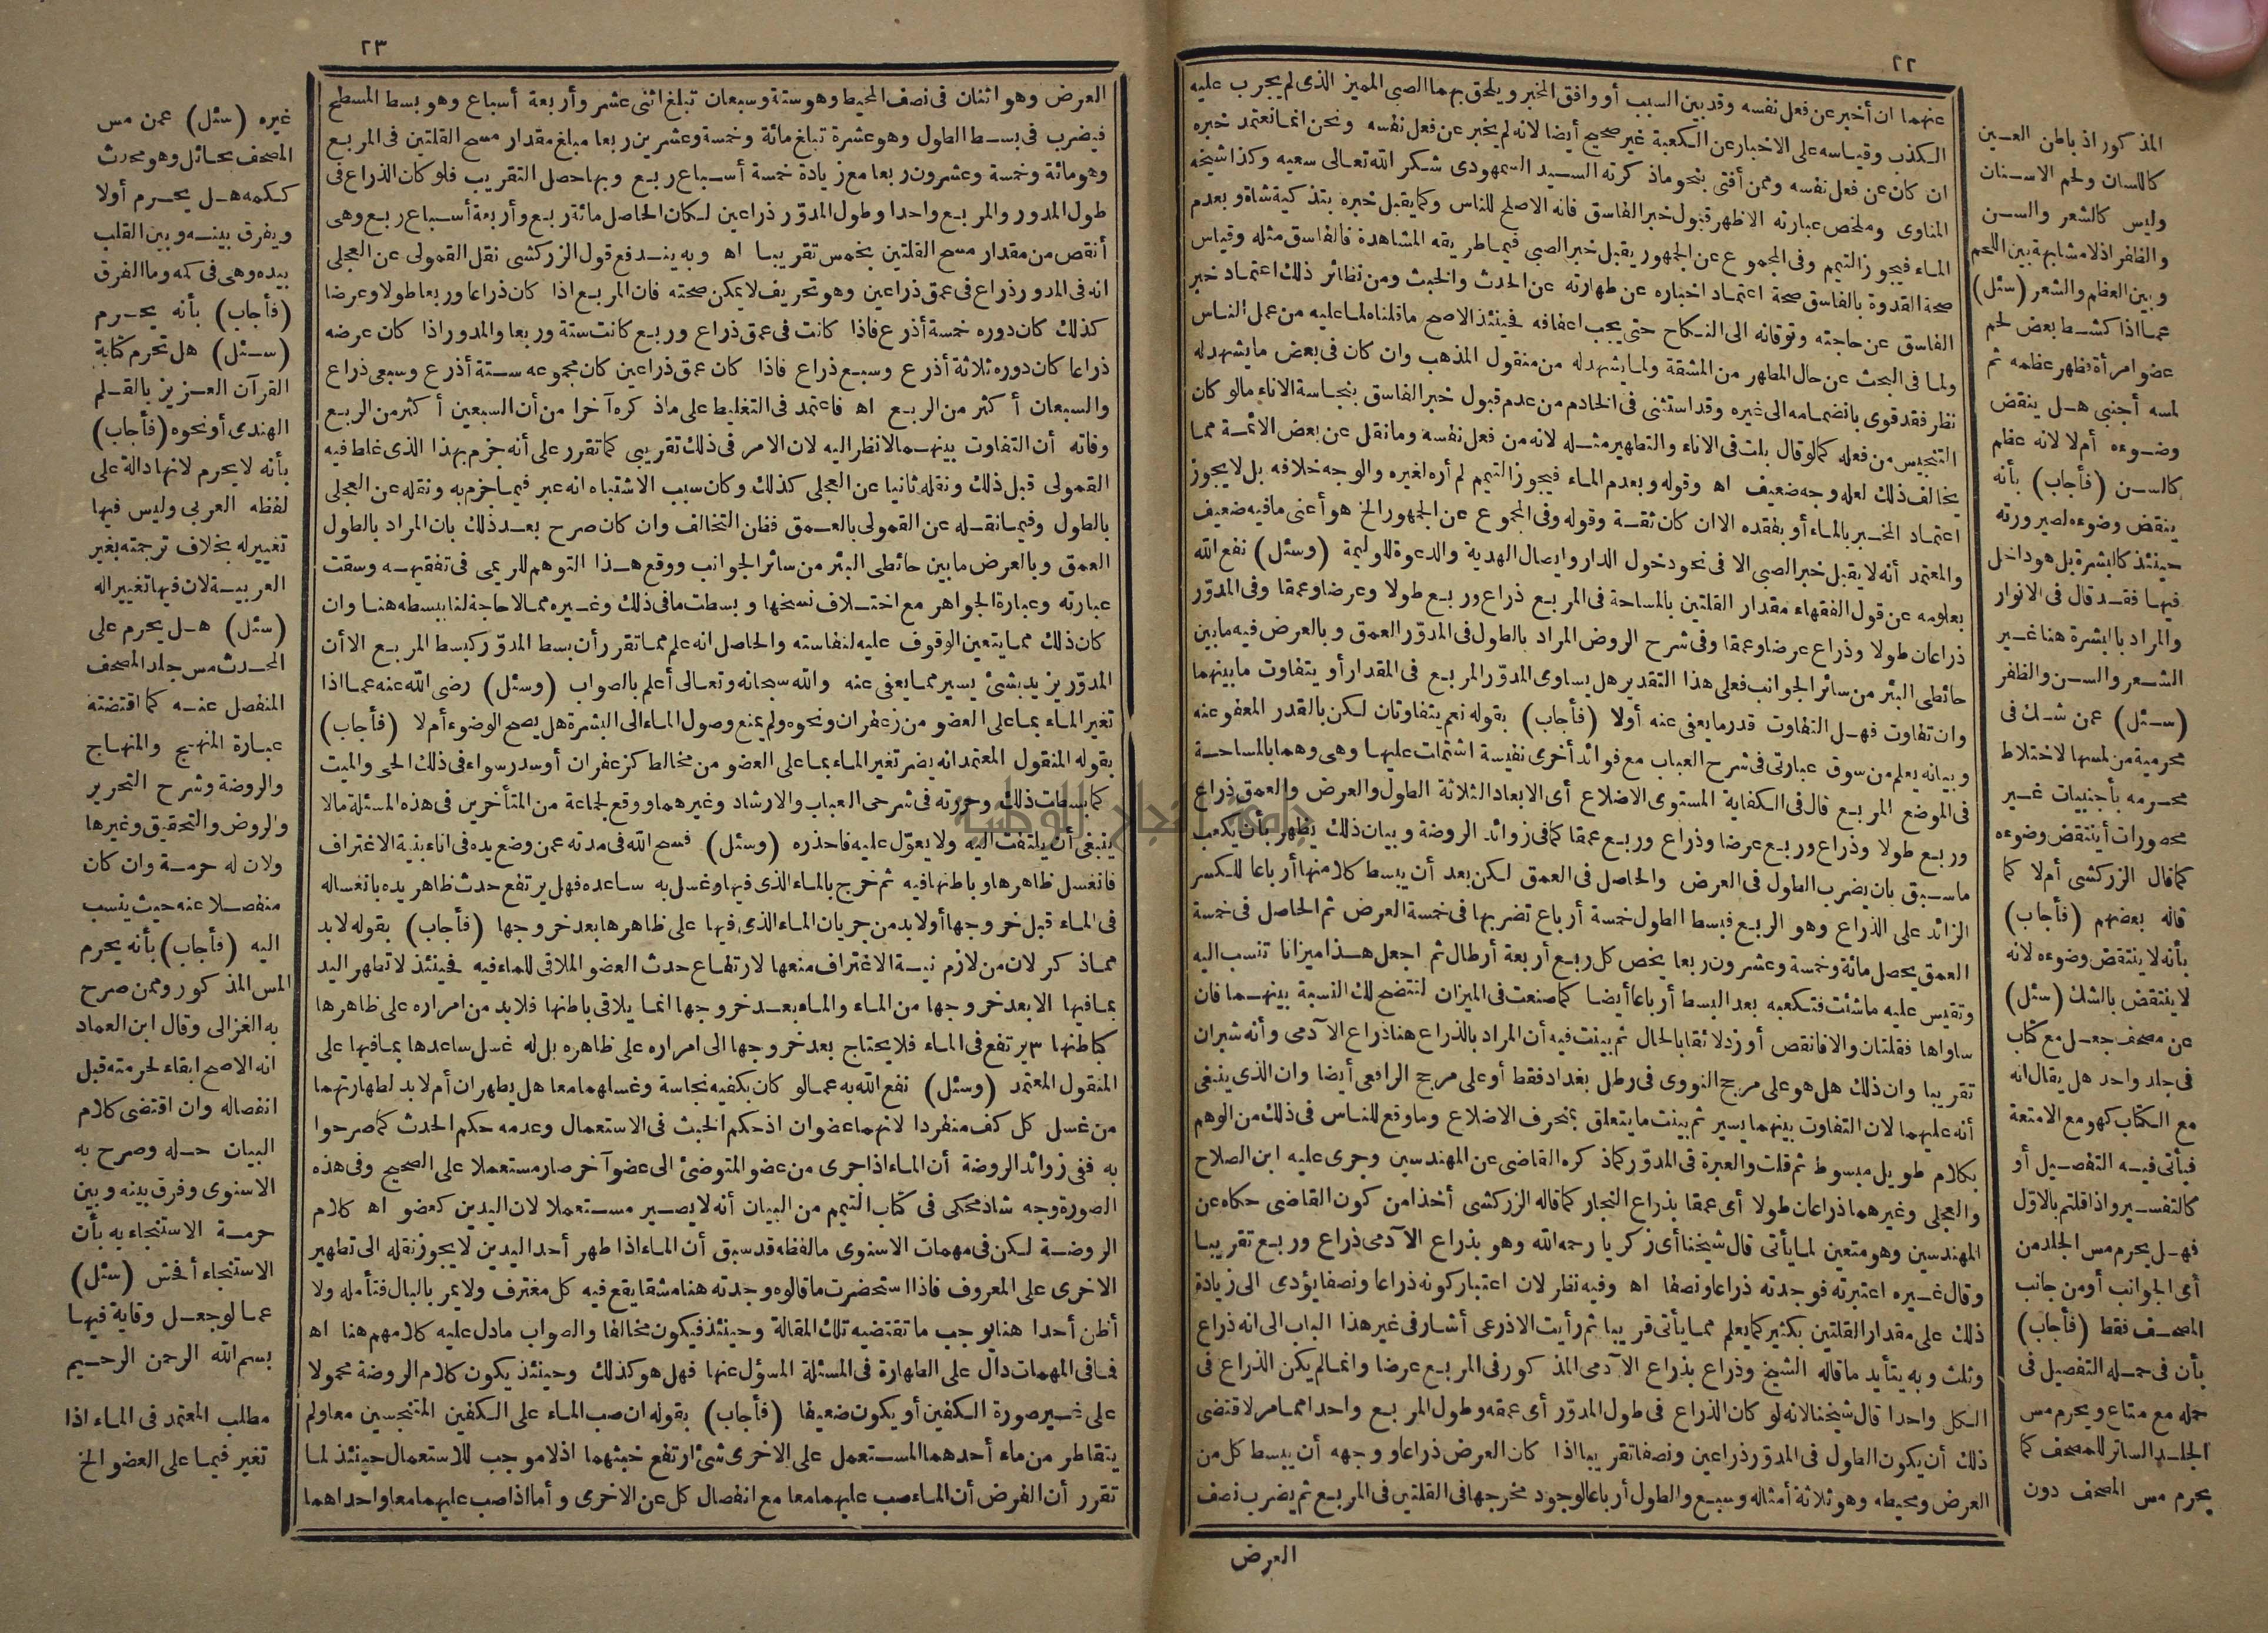 ٢٢
عنهما ان أخبر عن فعل نفسه وقد بين السبب أو وافق المخبر ويلحق بهما الصبي المميز الذى لم يجرب عليه
الكذب وقياسه على الاخبار عن الكعبة غير صحيح أيضا لانه لم يخبر عن فعل نفسه ونحن انما نعتمد خبره
ان كان عن فعل نفسه وممن أفتى بنحو ماذ كرته السيد السمهودى شكر الله تعالى سعيه وكذا شيخه
المناوى وملخص عبارته الاظهر قبول خبر الفاسق فانه الاصلح للناس وكما يقبل خبره بتذ كية شاة وبعدم
الماء فيجوز التيمم وفى المجموع عن الجمهور يقبل خبر الصبي فيما طريقه المشاهدة فالفاسق مثله وقياس
صحة القدوة بالفاسق صحة اعتماد اخباره عن طهارته عن الحدث والخبث ومن نظائر ذلك اعتماد خبر
الفاسق عن حاجته وتوقانه الى النكاح حتى يجب اعفافه فحينئذ الاصح ما قلناه لما عليه من عمل الناس
ولما فى البحث عن حال المطهر من المشقة ولما يشهد له من منقول المذهب وان كان فى بعض ما يشهد له
نظر فقد قوى بانضمامه الى غيره وقد استثنى فى الخادم من عدم قبول خبر الفاسق بنجاسة الاناء ما لو كان
التنجيس من فعله كما لو قال بلت فى الاناء والتطهير مثله لانه من فعل نفسه وما نقل عن بعض الائمة مما
يخالف ذلك لعله وجه ضعيف اه وقوله وبعدم الماء فيجوز التيمم لم أره لغيره والوجه خلافه بل لا يجوز
اعتماد المخبر بالماء أو بفقده الا ان كان ثقة وقوله وفى المجموع عن الجمهور الخ هو أعنى ما فيه ضعيف
والمعتمد أنه لا يقبل خبر الصبى الا فى نحو دخول الدار وايصال الهدية والدعوة للوليمة (وسئل) نفع الله
بعلومه عن قول الفقهاء مقدار القلتين بالمساحة فى المربع ذراع وربع طولا وعرضا وعمقا وفى المدوّر
ذراعان طولا وذراع عرضا وعمقا وفى شرح الروض المراد بالطول فى المدوّر العمق وبالعرض فيه ما بين
حائطى البئر من سائر الجوانب فعلى هذا التقدير هل يساوى المدوّر المربع فى المقدار أو يتفاوت ما بينهما
وان تفاوت فهل التفاوت قدر ما يعفى عنه أولا (فأجاب) بقوله نعم يتفاوتان لكن بالقدر المعفو عنه
وبيانه يعلم من سوق عبارتى فى شرح العباب مع فوائد أخرى نفيسة اشتملت عليها وهى وهما بالمساحة
فى الموضع المربع قال فى الكفاية المستوى الاضلاع أى الابعاد الثلاثة الطول والعرض والعمق ذراع
وربع طولا وذراع وربع عرضا وذراع وربع عمقا كما فى زوائد الروضة وبيان ذلك يظهر بأن يكعب
ما سبق بان يضرب الطول فى العرض والحاصل فى العمق لكن بعد أن يبسط كلا منها أرباعا للكسر
الزائد على الذراع وهو الربع فبسط الطول خمسة أرباع تضربها فى خمسة العرض ثم الحاصل فى خمسة
العمق يحصل مائة وخمسة وعشرون ربعا يخص كل ربع أربعة أرطال ثم اجعل هذا ميزانا تنسب اليه
وتقيس عليه ما شئت فتكعبه بعد البسط أرباعا أيضا كما صنعت فى الميزان لتتضح لك النسبة بينهما فان
ساواها فقلتان والا فانقص أو زد لائقا بالحال ثم بينت فيه أن المراد بالذراع هنا ذراع الآدمى وأنه شبران
تقريبا وان ذلك هل هو على مرجح النووى فى رطل بغداد فقط أو على مرجح الرافعى أيضا وان الذى ينبغى
أنه عليهما لان التفاوت بينهما يسير ثم بينت ما يتعلق بمنحرف الاضلاع وما وقع للناس فى ذلك من الوهم
بكلام طويل مبسوط ثم قلت والعبرة فى المدوّر كما ذ كره القاضى عن المهندسين وجرى عليه ابن الصلاح
والعجلى وغيرهما ذراعان طولا أى عمقا بذراع النجار كما قاله الزركشى أخذا من كون القاضى حكاه عن
المهندسين وهو متعين لما يأتى قال شيخنا أى زكريا رحمه الله وهو بذراع الآدمى ذراع وربع تقريبا
وقال غيره اعتبرته فوجدته ذراعا ونصفا اه وفيه نظر لان اعتبار كونه ذراعا ونصفا يؤدى الى زيادة
ذلك على مقدار القلتين بكثير كما يعلم مما يأتى قريبا ثم رأيت الاذرعى أشار فى غير هذا الباب الى انه ذراع
وثلث وبه يتأيد ما قاله الشيخ وذراع بذراع الآدمى المذ كور فى المربع عرضا وانما لم يكن الذراع فى
الكل واحدا قال شيخنا لانه لو كان الذراع فى طول المدوّر أى عمقه وطول المربع واحدا مما مر لاقتضى
ذلك أن يكون الطول فى المدوّر ذراعين ونصفا تقريبا اذا كان العرض ذراعا ووجهه أن يبسط كل من
العرض ومحيطه وهو ثلاثة أمثاله وسبع والطول أرباعا لوجود مخرجها فى القلتين فى المربع ثم يضرب نصف
العرض
المذ كور اذ باطن العين
كاللسان ولحم الاسنان
وليس كالشعر والسن
والظفر اذ لا مشابهة بين اللحم
وبين العظم والشعر (سئل)
عما اذا كشط بعض لحم
عضو امرأة فظهر عظمه ثم
لمسه أجنبى هل ينقض
وضوءه أم لا لانه عظم
كالسن (فأجاب) بأنه
ينقض وضوءه لصيرورته
حينئذ كالبشرة بل هو داخل
فيها فقد قال فى الانوار
والمراد بالبشرة هنا غير
الشعر والسن والظفر
(سئل) عمن شك فى
محرمية من لمسها لاختلاط
محرمه بأجنبيات غير
محصورات أينتقض وضوءه
كما قال الزركشى أم لا كما
قاله بعضهم (فأجاب)
بأنه لا ينتقض وضوءه لانه
لا ينتقض بالشك (سئل)
عن مصحف جعل مع كتاب
فى جلد واحد هل يقال انه
مع الكتاب كهو مع الامتعة
فيأتى فيه التفصيل أو
كالتفسير واذا قلتم بالاول
فهل يحرم مس الجلد من
أى الجوانب أو من جانب
المصحف فقط (فأجاب)
بأن فى حمله التفصيل فى
حمله مع متاع ويحرم مس
الجلد الساتر للمصحف كما
يحرم مس المصحف دون
٢٣
العرض وهو اثنان فى نصف المحيط وهو ستة وسبعان تبلغ اثنى عشر وأربعة أسباع وهو بسط المسطح
فيضرب فى بسط الطول وهو عشرة تبلغ مائة وخمسة وعشرين ربعا مبلغ مقدار مسح القلتين فى المربع
وهو مائة وخمسة وعشرون ربعا مع زيادة خمسة أسباع ربع وبها حصل التقريب فلو كان الذراع فى
طول المدور والمربع واحدا وطول المدوّر ذراعين لكان الحاصل مائة ربع وأربعة أسباع ربع وهى
أنقص من مقدار مسح القلتين بخمس تقريبا اه وبه يندفع قول الزركشى نقل القمولى عن العجلى
انه فى المدور ذراع فى عمق ذراعين وهو تحريف لا يمكن صحته فان المربع اذا كان ذراعا وربعا طولا وعرضا
كذلك كان دوره خمسة أذرع فاذا كانت فى عمق ذراع وربع كانت ستة وربعا والمدور اذا كان عرضه
ذراعا كان دوره ثلاثة أذرع وسبع ذراع فاذا كان عمق ذراعين كان مجموعه ستة أذرع وسبعى ذراع
والسبعان أكثر من الربع اه فاعتمد فى التغليط على ماذ كره آخرا من أن السبعين أكثر من الربع
وفاته أن التفاوت بينهما لا نظر اليه لان الامر فى ذلك تقريبى كما تقرر على أنه جزم بهذا الذى غلط فيه
القمولى قبل ذلك ونقله ثانيا عن العجلى كذلك وكان سبب الاشتباه انه عبر فيما جزم به ونقله عن العجلى
بالطول وفيما نقله عن القمولى بالعمق فظن التخالف وان كان صرح بعد ذلك بان المراد بالطول
العمق وبالعرض ما بين حائطى البئر من سائر الجوانب ووقع هذا التوهم للريمى فى تفقيهه وسقت
عبارته وعبارة الجواهر مع اختلاف نسخها وبسطت ما فى ذلك وغيره مما لا حاجة لنا ببسطه هنا وان
كان ذلك مما يتعين الوقوف عليه لنفاسته والحاصل انه علم مما تقرر أن بسط المدوّر كبسط المربع الا أن
المدوّر يزيد بشئ يسير مما يعفى عنه والله سبحانه وتعالى أعلم بالصواب (وسئل) رضى الله عنه عما اذا
تغير الماء بما على العضو من زعفران ونحوه ولم يمنع وصول الماء الى البشرة هل يصح الوضوء أم لا (فأجاب)
بقوله المنقول المعتمد انه يضر تغير الماء بما على العضو من مخالط كزعفران أو سدر سواء فى ذلك الحى والميت
كما بسطت ذلك وحررته فى شرحى العباب والارشاد وغيرهما ووقع لجماعة من المتأخرين فى هذه المسئلة ما لا
ينبغى أن يلتفت اليه ولا يعوّل عليه فاحذره (وسئل) فسح الله فى مدته عمن وضع يده فى اناء بنية الاغتراف
فانغسل ظاهرها وباطنها فيه ثم خرج بالماء الذى فيها وغسل به ساعده فهل يرتفع حدث ظاهر يده بانغساله
فى الماء قبل خروجها أولا بد من جريان الماء الذى فيها على ظاهرها بعد خروجها (فأجاب) بقوله لا بد
مماذ كر لان من لازم نية الاغتراف منعها لارتفاع حدث العضو الملاقى للماء فيه فحينئذ لا تطهر اليد
بما فيها الا بعد خروجها من الماء والماء بعد خروجها انما يلاقى باطنها فلا بد من امراره على ظاهرها
كباطنها ٣ يرتفع فى الماء فلا يحتاج بعد خروجها الى امراره على ظاهره بل له غسل ساعدها بما فيها على
المنقول المعتمد (وسئل) نفع الله به عما لو كان بكفيه نجاسة وغسلهما معا هل يطهران أم لا بد لطهارتهما
من غسل كل كف منفردا لانهما عضوان اذ حكم الخبث فى الاستعمال وعدمه حكم الحدث كما صرحوا
به ففى زوائد الروضة أن الماء اذا جرى من عضو المتوضئ الى عضو آخر صار مستعملا على الصحيح وفى هذه
الصورة وجه شاذ محكى فى كتاب التيمم من البيان أنه لا يصير مستعملا لان اليدين كعضو اه كلام
الروضة لكن فى مهمات الاسنوى ما لفظه قد سبق أن الماء اذا طهر أحد اليدين لا يجوز نقله الى تطهير
الاخرى على المعروف فاذا استحضرت ما قالوه وجدته هنا مشقا يقع فيه كل مغترف ولا يمر بالبال فتأمله ولا
أظن أحدا هنا يوجب ما تقتضيه تلك المقالة وحينئذ فيكون مخالفا والصواب ما دل عليه كلامهم هنا اه
فما فى المهمات دال على الطهارة فى المسئلة المسؤل عنها فهل هو كذلك وحينئذ يكون كلام الروضة محمولا
على غير صورة الكفين أو يكون ضعيفا (فأجاب) بقوله ان صب الماء على الكفين المتنجسين معا ولم
يتقاطر من ماء أحدهما المستعمل على الاخرى شئ ارتفع خبثهما اذ لا موجب للاستعمال حينئذ لما
تقرر أن الفرض أن الماء صب عليهما معا مع انفصال كل عن الاخرى وأما اذا صب عليهما معا واحداهما
غيره (سئل) عمن مس
المصحف بحائل وهو محدث
ككمه هل يحرم أولا
ويفرق بينه وبين القلب
بيده وهى فى كمه وما الفرق
(فأجاب) بأنه يحرم
(سئل) هل تحرم كتابة
القرآن العزيز بالقلم
الهندى أو نحوه (فأجاب)
بأنه لا يحرم لانها دالة على
لفظه العربى وليس فيها
تغيير له بخلاف ترجمته بغير
العربية لان فيها تغييرا له
(سئل) هل يحرم على
المحدث مس جلد المصحف
المنفصل عنه كما اقتضته
عبارة المنهج والمنهاج
والروضة وشرح التحرير
والروض والتحقيق وغيرها
ولان له حرمة وان كان
منفصلا عنه حيث ينسب
اليه (فأجاب) بأنه يحرم
المس المذ كور وممن صرح
به الغزالى وقال ابن العماد
انه الاصح ابقاء لحرمته قبل
انفصاله وان اقتضى كلام
البيان حله وصرح به
الاسنوى وفرق بينه وبين
حرمة الاستنجاء به بأن
الاستنجاء أفحش (سئل)
عما لو جعل وقاية فيها
بسم الله الرحمن الرحيم
مطلب المعتمد فى الماء اذا
تغير فيما على العضو الخ